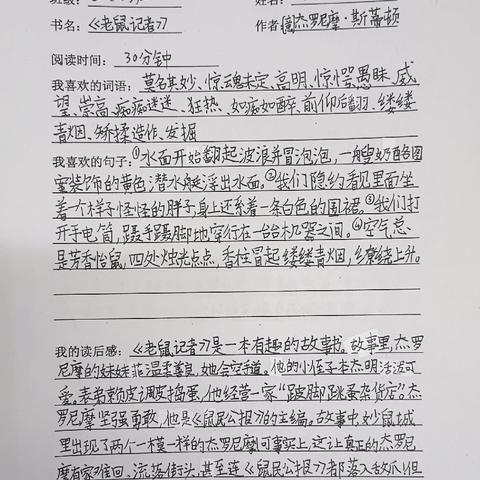 班级：
姓名：
书名：《老鼠记者》
作者 杰罗尼摩·斯蒂顿
阅读时间：30分钟
我喜欢的词语：莫名其妙、惊魂未定、高明、惊惶、愚昧、威
望、崇高、痴痴迷迷、狂热、如痴如醉、前仰后翻、缕缕
青烟、矫揉造作、发掘
我喜欢的句子：①水面开始翻起波浪并冒泡泡，一艘奶酪图
案装饰的黄色潜水艇浮出水面。②我们隐约看见里面坐
着个样子怪怪的胖子，身上还系着一条白色的围裙。③我们打
开手电筒，蹑手蹑脚地穿行在一台台机器之间。④空气总
是芳香怡鼠，四处烛光点点，香炷冒起缕缕青烟，缭绕上升。
我的读后感：《老鼠记者》是一本有趣的故事书。故事里，杰罗
尼摩的妹妹菲温柔善良，她会空手道。他的小侄子本杰明活泼可
爱。表弟赖皮调皮捣蛋，他经营一家“跛脚跳蚤杂货店”。杰
罗尼摩坚强勇敢，他是《鼠民公报》的主编。故事中，妙鼠城
里出现了两个一模一样的杰罗尼摩，可事实上，这让真正的杰罗尼
摩有家难回、流落街头，甚至连《鼠民公报》都落入敌爪！但